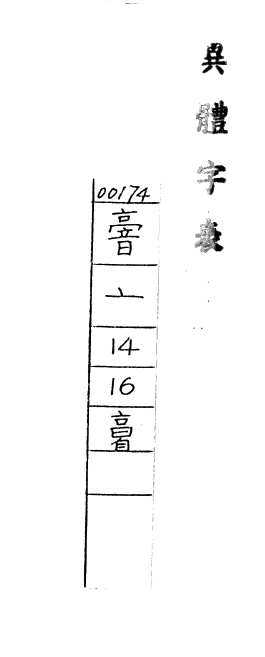 異體字表
00174
亠
14
16